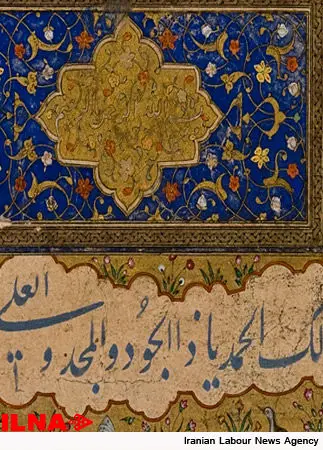 بسم الله الرحمن الرحيم
لك الحمد يا ذا الجُود والمجد و العلى
ILNA
Iranian Labour News Agency